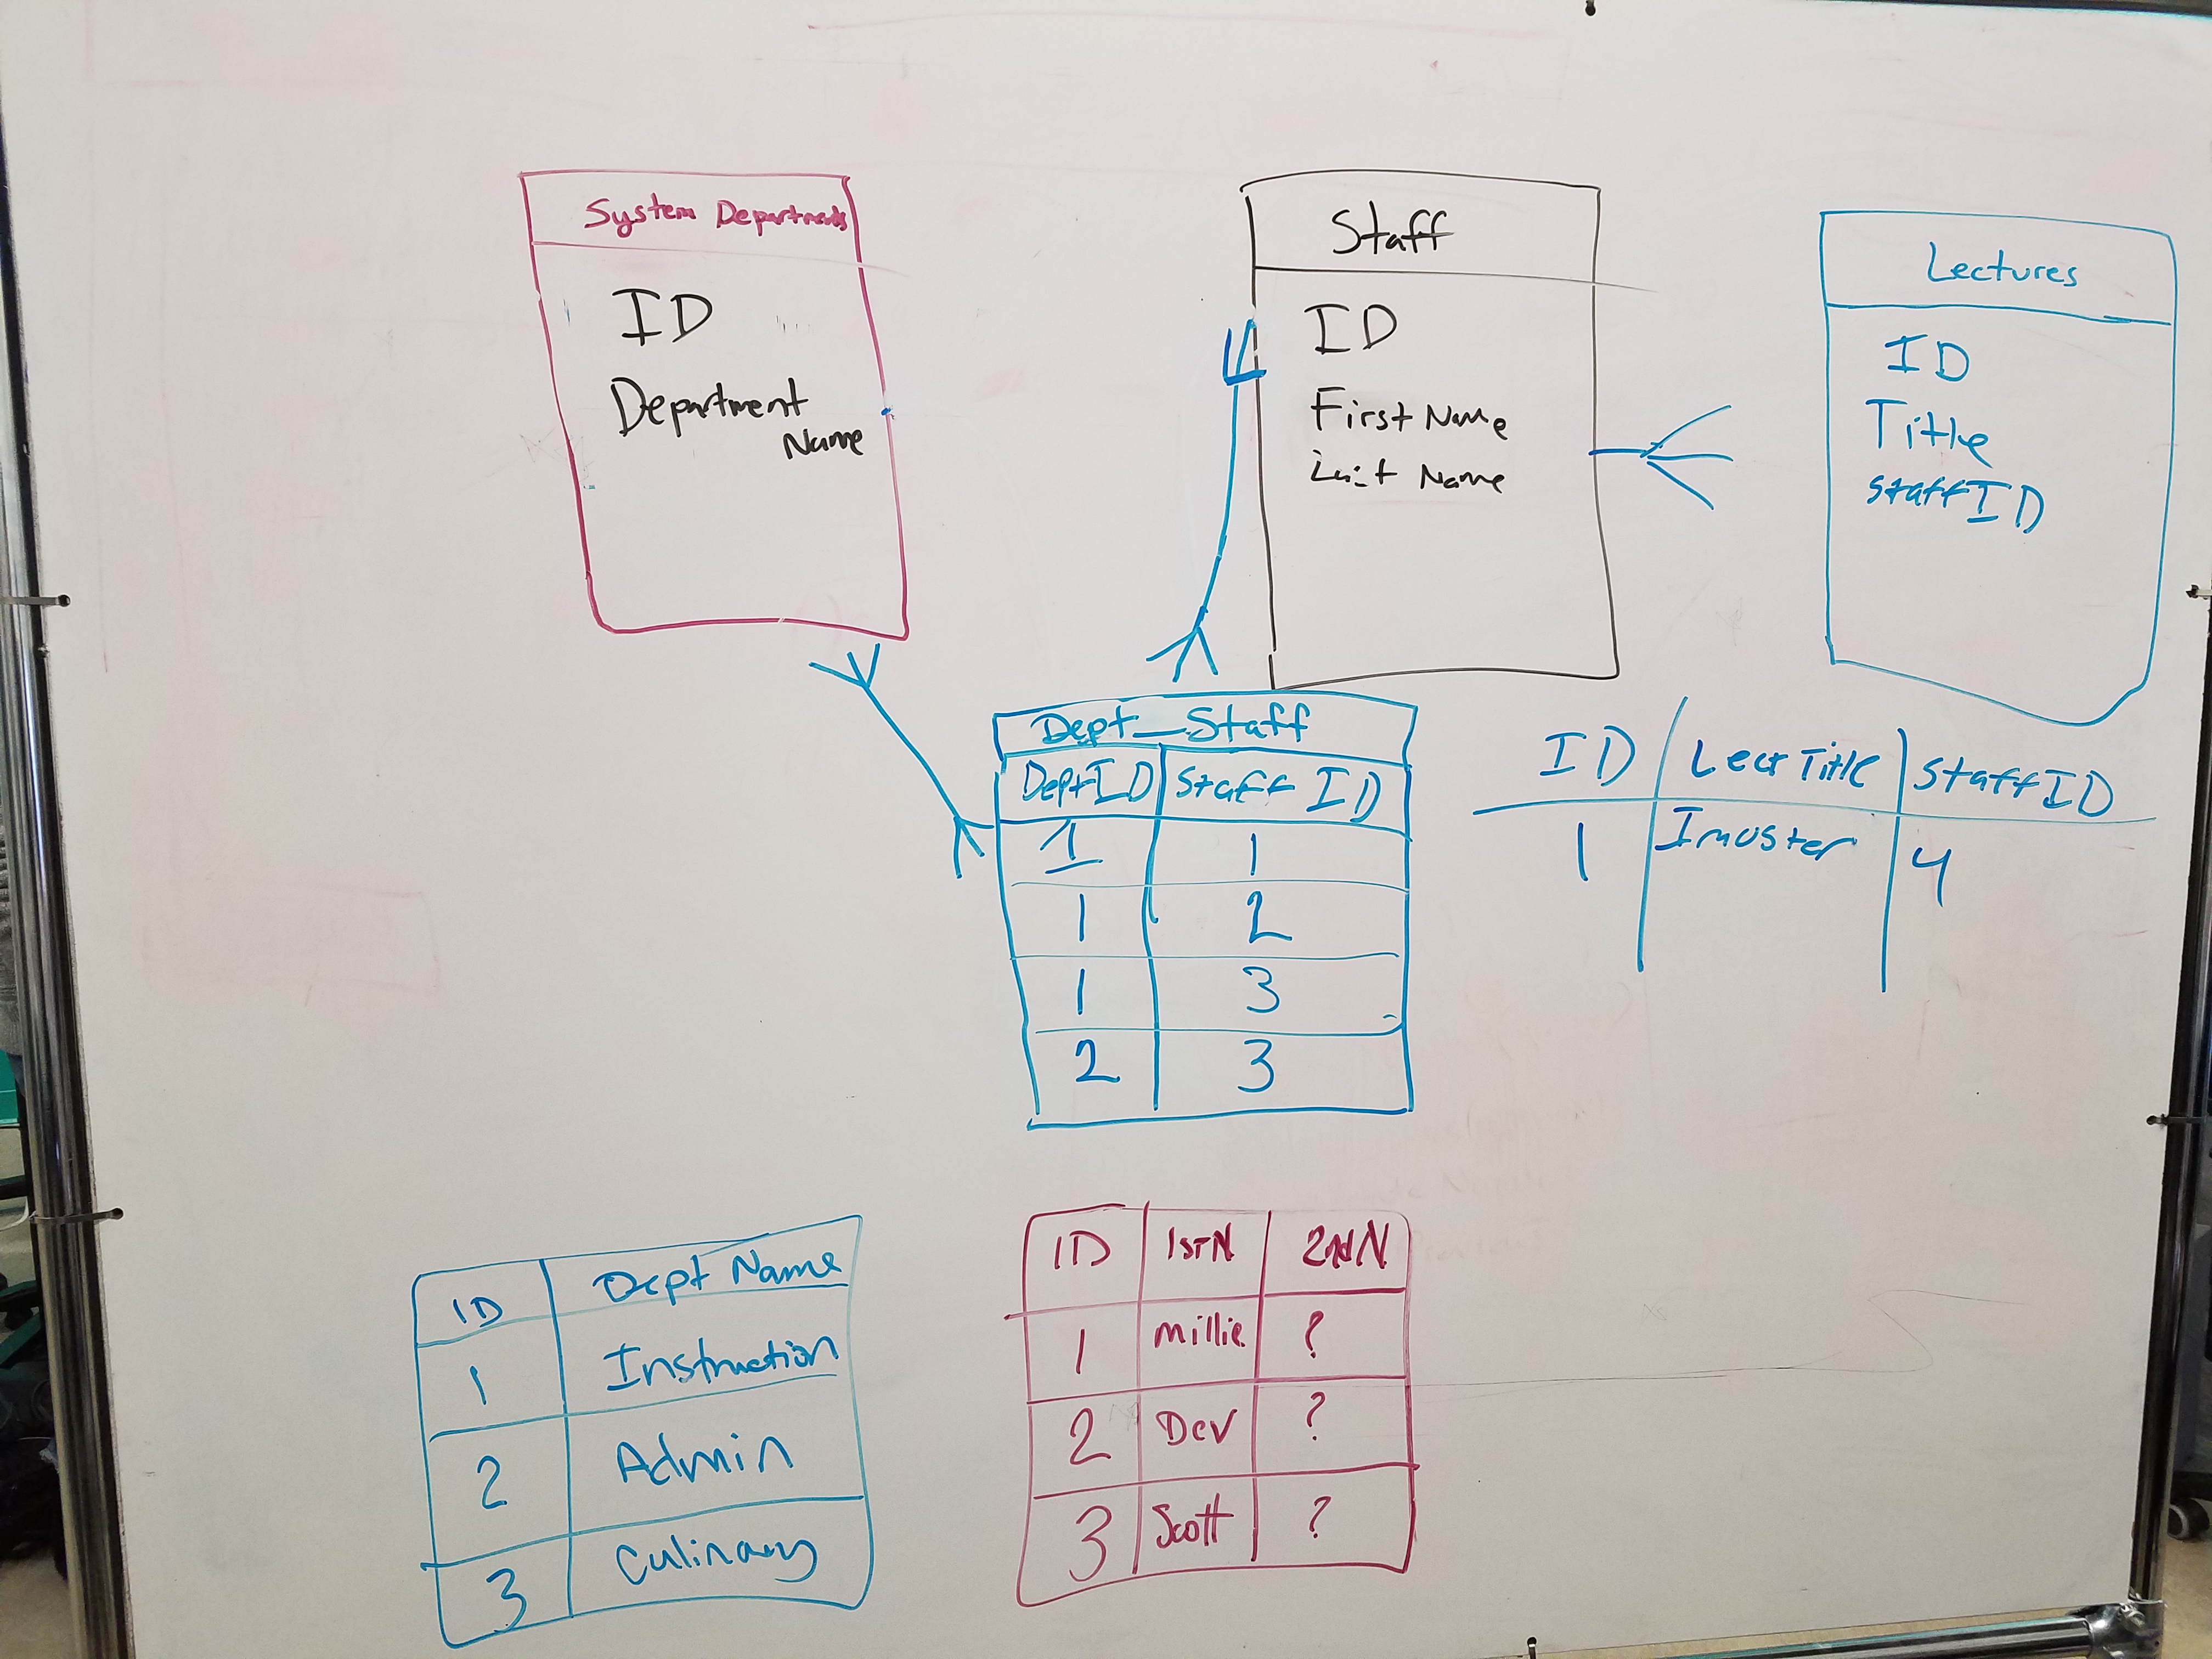 System Departments
ID
Department
Name
Staff
ID
First Name
Last Name
Lectures
ID
Title
staffID
Dept_Staff
DeptID Staff ID
1 1
1 2
1 3
2 3
ID Lect Title StaffID
1 Imoster 4
ID Dept Name
1 Instruction
2 Admin
3 Culinary
ID 1stN 2ndN
1 millie ?
2 Dev ?
3 Scott ?